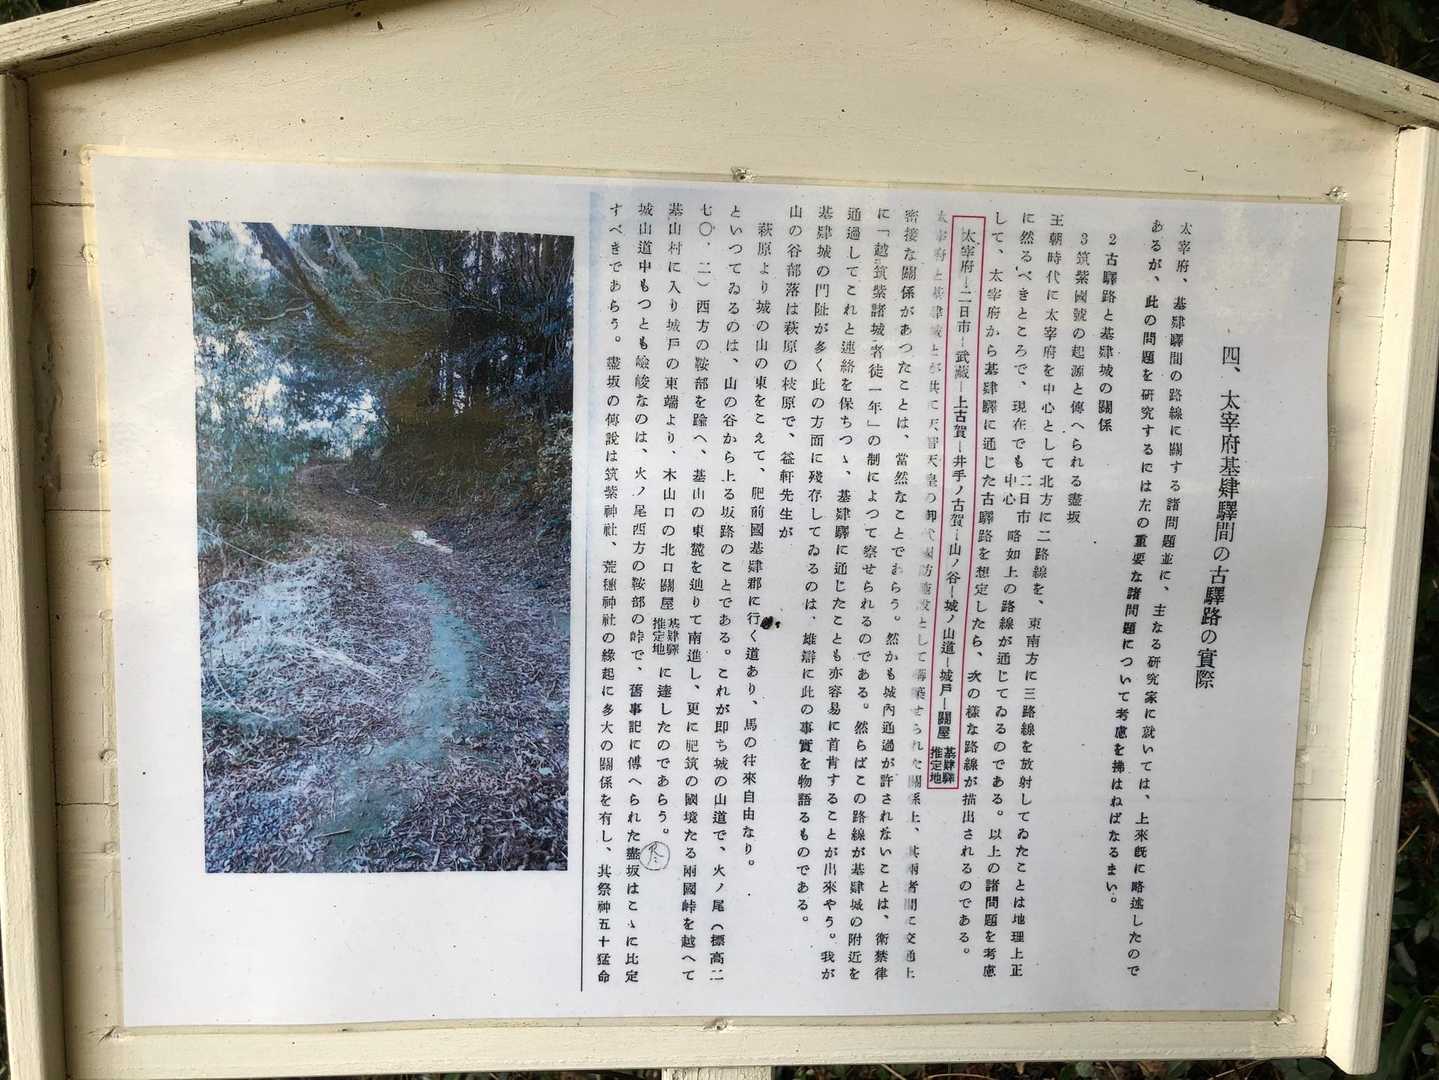 四、太宰府基肄驛間の古驛路の實際
太宰府、基肄驛間の路線に關する諸問題並に、主なる研究家に就いては、上來既に略述したので
あるが、此の問題を研究するには左の重要な諸問題について考慮を拂はねばなるまい。
2 古驛路と基肄城の關係
3 筑紫國號の起源と傳へられる盡坂
王朝時代に太宰府を中心として北方に二路線を、東南方に三路線を放射してゐたことは地理上正
に然るべきところで、現在でも二日市中心略如上の路線が通じてゐるのである。以上の諸問題を考慮
して、太宰府から基肄驛に通じた古驛路を想定したら、次の様な路線が描出されるのである。
太宰府―二日市―武藏―上古賀―井手ノ古賀―山ノ谷―城ノ山道―城戸―關屋 基肄驛推定地
太宰府と基肄城とが共に天智天皇の御代國防施設として構築せられた關係上、其兩者間に交通上
密接な關係があつたことは、當然なことであらう。然かも城內通過が許されないことは、衛禁律
に「越筑紫諸城者徒一年」の制によつて察せられるのである。然らばこの路線が基肄城の附近を
通過してこれと連絡を保ちつゝ、基肄驛に通じたことも亦容易に首肯することが出來やう。我が
基肄城の門趾が多く此の方面に殘存してゐるのは、雄辯に此の事實を物語るものである。
山の谷部落は萩原の枝原で、益軒先生が
萩原より城の山の東をこえて、肥前國基肄郡に行く道あり、馬の往來自由なり。
といつてゐるのは、山の谷から上る坂路のことである。これが即ち城の山道で、火ノ尾（標高二
七〇．二）西方の鞍部を踰へ、基山の東麓を辿りて南進し、更に肥筑の國境たる兩國峠を越へて
基山村に入り城戸の東端より、木山口の北口關屋 基肄驛推定地 に達したのであらう。
城山道中もつとも嶮峻なのは、火ノ尾西方の鞍部の峠で、舊事記に傳へられた盡坂はこゝに比定
すべきであらう。盡坂の傳說は筑紫神社、荒穗神社の緣起に多大の關係を有し、其祭神五十猛命